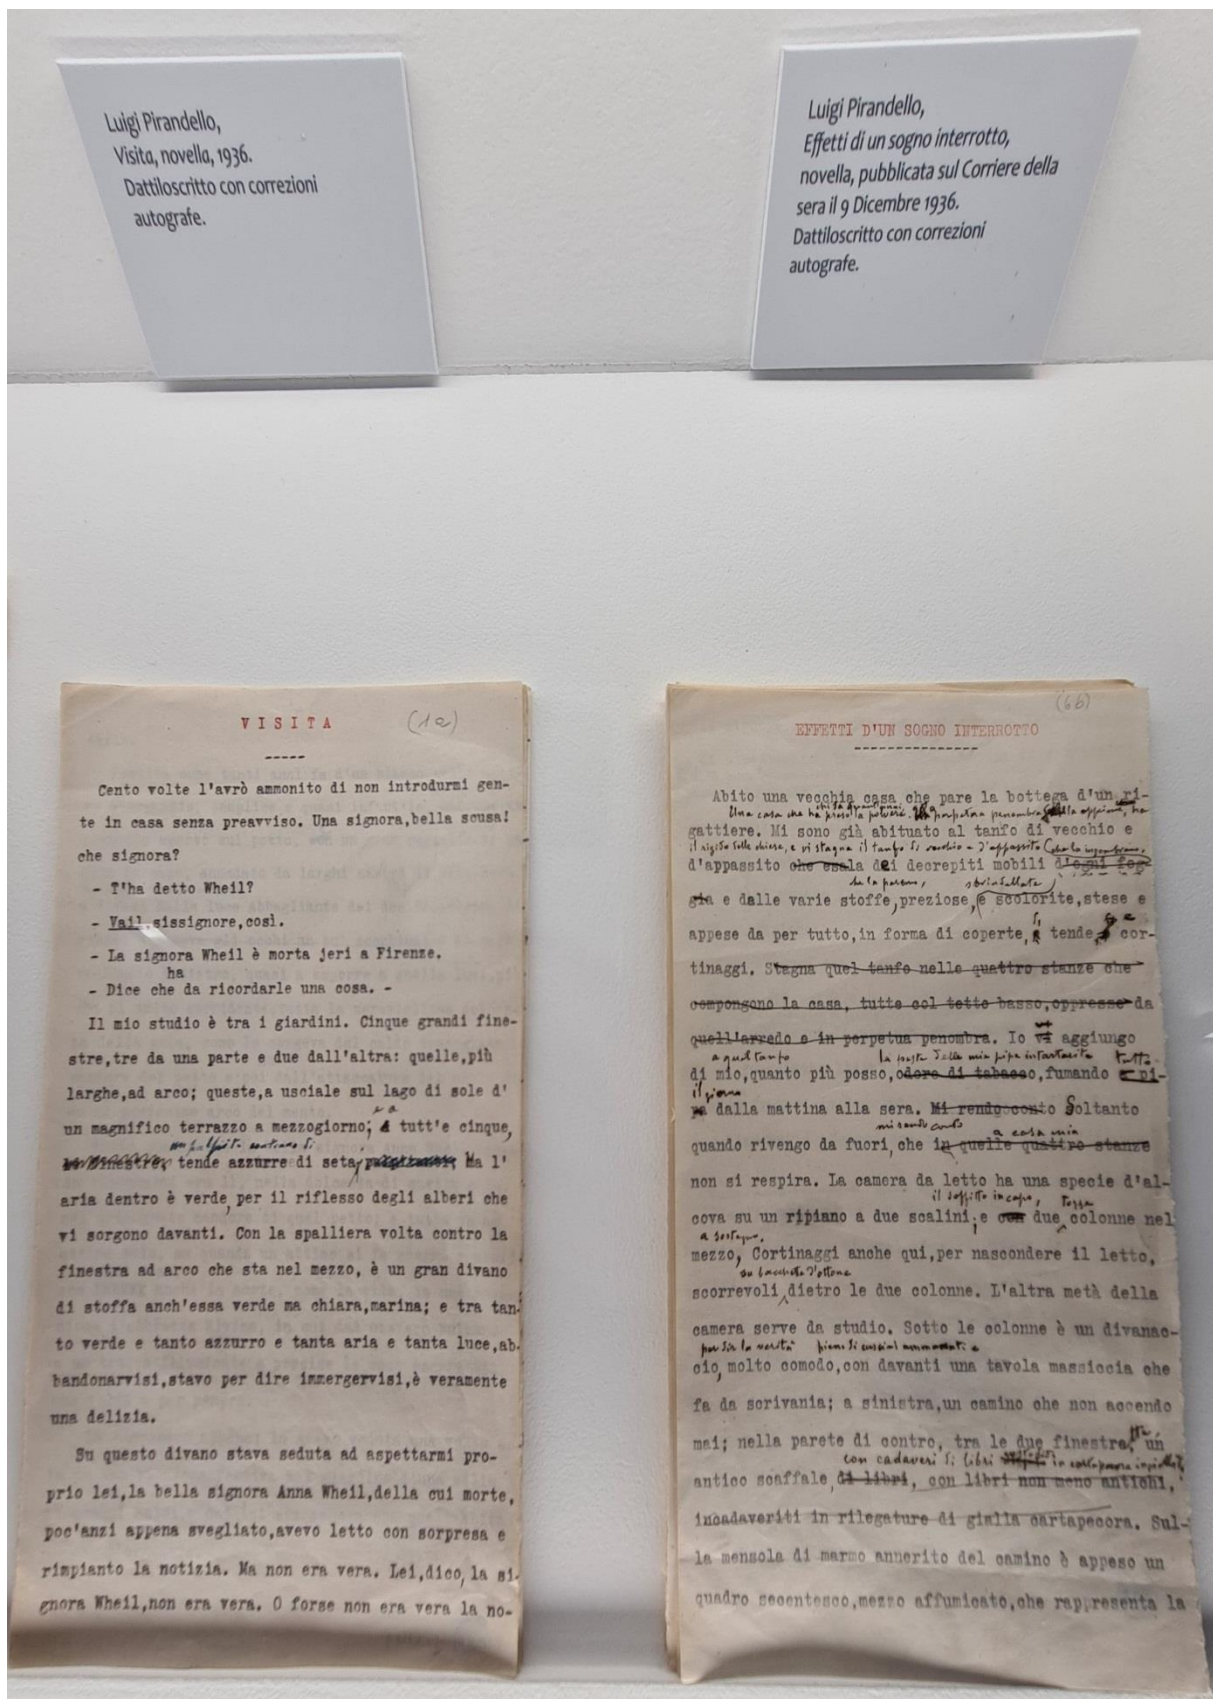 Luigi Pirandello,
Visita, novella, 1936.
Dattiloscritto con correzioni
autografe.
Luigi Pirandello,
Effetti di un sogno interrotto,
novella, pubblicata sul Corriere della
sera il 9 Dicembre 1936.
Dattiloscritto con correzioni
autografe.
VISITA (1a)
-----
Cento volte l'avrò ammonito di non introdurmi gen-
te in casa senza preavviso. Una signora,bella scusa!
che signora?
- T'ha detto Wheil?
- Vail,sissignore,così.
- La signora Wheil è morta jeri a Firenze.
ha
- Dice che da ricordarle una cosa. -
Il mio studio è tra i giardini. Cinque grandi fine-
stre,tre da una parte e due dall'altra: quelle,più
larghe,ad arco; queste,a usciale sul lago di sole d'
un magnifico terrazzo a mezzogiorno; a tutt'e cinque,
un palpito continuo di
tende azzurre di seta; Ma l'
aria dentro è verde, per il riflesso degli alberi che
vi sorgono davanti. Con la spalliera volta contro la
finestra ad arco che sta nel mezzo, è un gran divano
di stoffa anch'essa verde ma chiara,marina; e tra tan-
to verde e tanto azzurro e tanta aria e tanta luce,ab-
bandonarvisi,stavo per dire immergervisi,è veramente
una delizia.
Su questo divano stava seduta ad aspettarmi pro-
prio lei,la bella signora Anna Wheil,della cui morte,
poc'anzi appena svegliato,avevo letto con sorpresa e
rimpianto la notizia. Ma non era vera. Lei,dico, la si-
gnora Wheil,non era vera. O forse non era vera la no-
(6b)
EFFETTI D'UN SOGNO INTERROTTO
---------------
Abito una vecchia casa che pare la bottega d'un ri-
Una casa che ha preso la polvere. penombra
gattiere. Mi sono già abituato al tanfo di vecchio e
il rigido delle chiese, e vi stagna il tanfo di vecchio e d'appassito
d'appassito che esala dei decrepiti mobili d'ogni fog-
che la parano, sbrindellate
gia e dalle varie stoffe,preziose, e scolorite,stese e
appese da per tutto,in forma di coperte, tende, e cor-
tinaggi. Stagna quel tanfo nelle quattro stanze che
compongono la casa, tutte col tetto basso,oppresso da
quell'arredo e in perpetua penombra. Io vi aggiungo
a quel tanfo la peste della mia pipa intartarita tutto
di mio,quanto più posso,odore di tabacco,fumando e pi-
il giorno
pa dalla mattina alla sera. Mi rendo conto Soltanto
mi rendo conto a casa mia
quando rivengo da fuori, che in quelle quattro stanze
non si respira. La camera da letto ha una specie d'al-
il soffitto in capo, tozze
cova su un ripiano a due scalini; e con due colonne nel
a sostegno,
mezzo, Cortinaggi anche qui,per nascondere il letto,
su bacchette d'ottone
scorrevoli dietro le due colonne. L'altra metà della
camera serve da studio. Sotto le colonne è un divanac-
per dir la verità pieno di cuscini ammontati e
cio, molto comodo,con davanti una tavola massiccia che
fa da scrivania; a sinistra,un camino che non accendo
mai; nella parete di contro, tra le due finestre, un
con cadaveri di libri in cartapecora
antico scaffale di libri, con libri non meno antichi,
incadaveriti in rilegature di gialla cartapecora. Sul-
la mensola di marmo annerito del camino è appeso un
quadro secentesco,mezzo affumicato,che rappresenta la